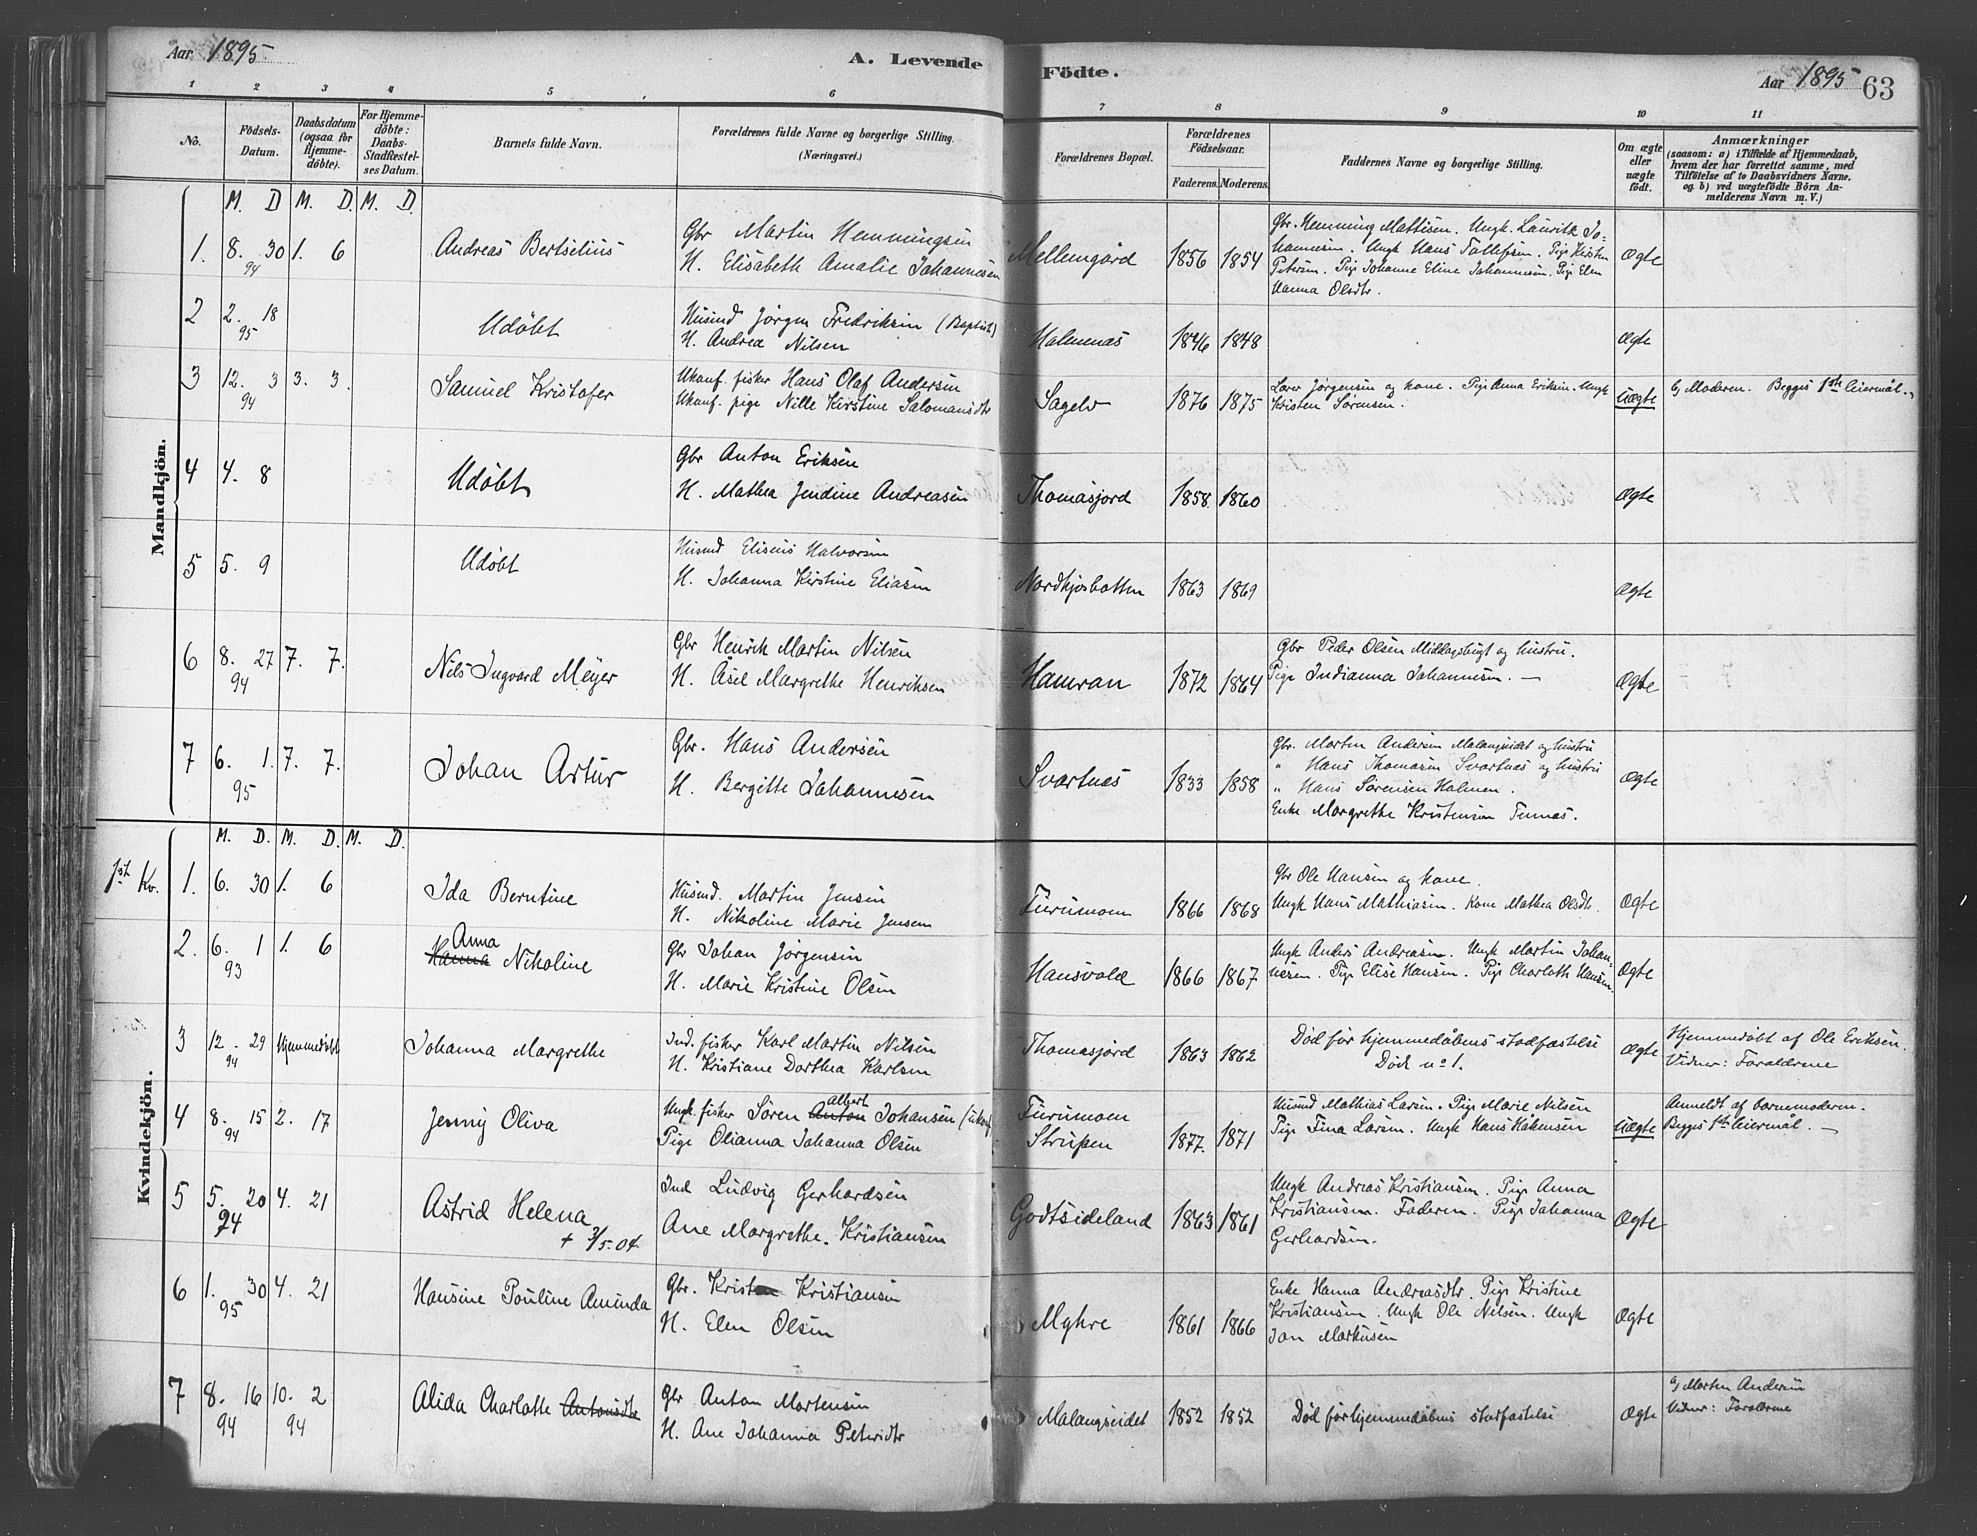 Aar 1895
A. Levende Födte.
Aar 1895 63
1 2 3 4 5 6 7 8 9 10 11
No.
Födsels-Datum.
Daabsdatum (ogsaa for Hjemmedöbte).
For Hjemmedöbte: Daabs-Stadfæstelses Datum.
Barnets fulde Navn.
Forældrenes fulde Navne og borgerlige Stilling. (Næringsvei.)
Forældrenes Bopæl.
Forældrenes Födselsaar.
Faderens. Moderens.
Faddernes Navne og borgerlige Stilling.
Om ægte eller uægte födt.
Anmærkninger
(saasom: a) i Tilfælde af Hjemmedaab, hvem der har forrettet samme, med Tilföielse af to Daabsvidners Navne, og b) ved uægtefödte Börn Anmelderens Navn m. V.)
Mandkjön.
M. D M. D. M. D.
1. 8. 30 94 1. 6 Andreas Bertselius
Gbr Martin Hemmingsen
H. Elisabeth Amalie Johannesen
Mellemgård 1856 1854
Gbr. Hemming Mattisen. Ungk. Lauritz Jo-
hannesen. Ungk Hans Tollefsen. Pige Kirsten
Petersen. Pige Johanne Eline Johannesen. Pige Elen
Hanna Olsdtr.
Ægte
2 2. 18 95 Udøbt
Husmd Jørgen Fredriksen (Baptist)
H. Andrea Nilsen
Halmenæs 1846 1848 Ægte
3 12. 3 94 3. 3. Samuel Kristofer
Ukonf. fisker Hans Olaf Andersen
Ukonf. pige Nille Kirstine Salomonsdtr
Sagelv 1876 1875
Lærer Jørgensen og kone. Pige Anna Eriksen. Ungk
Kristen Sørensen.
Uægte
b) Moderen. Begges 1ste leiermål.
4 4. 8 Udøbt
Gbr Anton Eriksen
H. Mathea Jendine Andreasen
Thomasjord 1858. 1860 Ægte
5 5. 9 Udøbt
Husmd Eliseus Halvorsen
H. Johanna Kirstine Eliasen
Nordkjosbotten 1863 1869 Ægte
6 8. 27 94 7. 7. Nils Ingvard Meyer
Gbr Henrik Martin Nilsen
H. Åsel Margrethe Henriksen
Hamran 1872 1864
Gbr Peder Olsen Middagsbugt og hustru.
Pige Indianna Johannesen. —
Ægte
7 6. 1. 95 7. 7. Johan Artur
Gbr. Hans Andersen
H. Bergitte Johannesen
Svartnæs 1833 1858
Gbr. Morten Andersen Malangseidet og hustru
" Hans Thomasen Svartnæs og hustru
" Hans Sørensen Holmen.
Enke Margrethe Kristensen Tennæs.
Ægte
Kvindekjön.
M. D. M. D. M. D.
1st Kv. 1. 6. 30 1. 6 Ida Berntine
Husmd. Martin Jensen
H. Nikoline Marie Jensen
Furumoen 1866 1868
Gbr Ole Hansen og kone.
Ungk Hans Mathiasen. Kone Mathea Olsdtr.
Ægte
2. 6. 1 93 1. 6 Hanna Anna Nikoline
Gbr Johan Jørgensen
H. Marie Kristine Olsen
Hansvold 1866 1867
Ungk Anders Andreasen. Ungk Martin Johan-
nesen. Pige Elise Hansen. Pige Charloth Hansen.
Ægte
3 12. 29 94 Hjemmedøbt Johanna Margrethe
Ind. fisker Karl Martin Nilsen
H. Kristiane Dorthea Karlsen
Thomasjord 1863 1862
Død før hjemmedåbens stadfæstelse
Død no 1.
Ægte
Hjemmedøbt af Ole Eriksen.
Vidner: Forældrene
4 8. 15 94 2. 17 Jenny Oliva
Ungk. fisker Søren Anton Albert Johansen (ukonf)
Pige Olianna Johanna Olsen
Furumoen
Strupen
1877. 1871
Husmd Mathias Larsen. Pige Marie Nilsen
Pige Fina Larsen. Ungk Hans Håkensen
Uægte
Anmeldt af barnemoderen.
Begges 1ste leiermål. —
5 5. 20 94 4. 21 Astrid Helena
+ 3/5-04.
Ind Ludvig Gerhardsen
Ane Margrethe. Kristiansen
Godtsideland 1863 1861
Ungk Andreas Kristiansen. Pige Anna
Kristiansen. Faderen. Pige Johanna
Gerhardsen.
Ægte
6 1. 30 95 4. 21 Hansine Pouline Aminda
Gbr. Kristen Kristiansen
H. Elen Olsen
Myhre 1861 1866
Enke Hanna Andreasdtr. Pige Kristine
Kristiansen. Ungk Ole Nilsen. Ungk
Jan Markusen
Ægte
7 8. 16 94 10. 2 94 Alida Charlotte Antonsdtr
Gbr Anton Mortensen
H. Ane Johanna Petersdtr
Malangseidet 1852 1852
Død før hjemmedåbens stadfæstelse
Ægte
a) Morten Andersen
Vidner: Forældrene